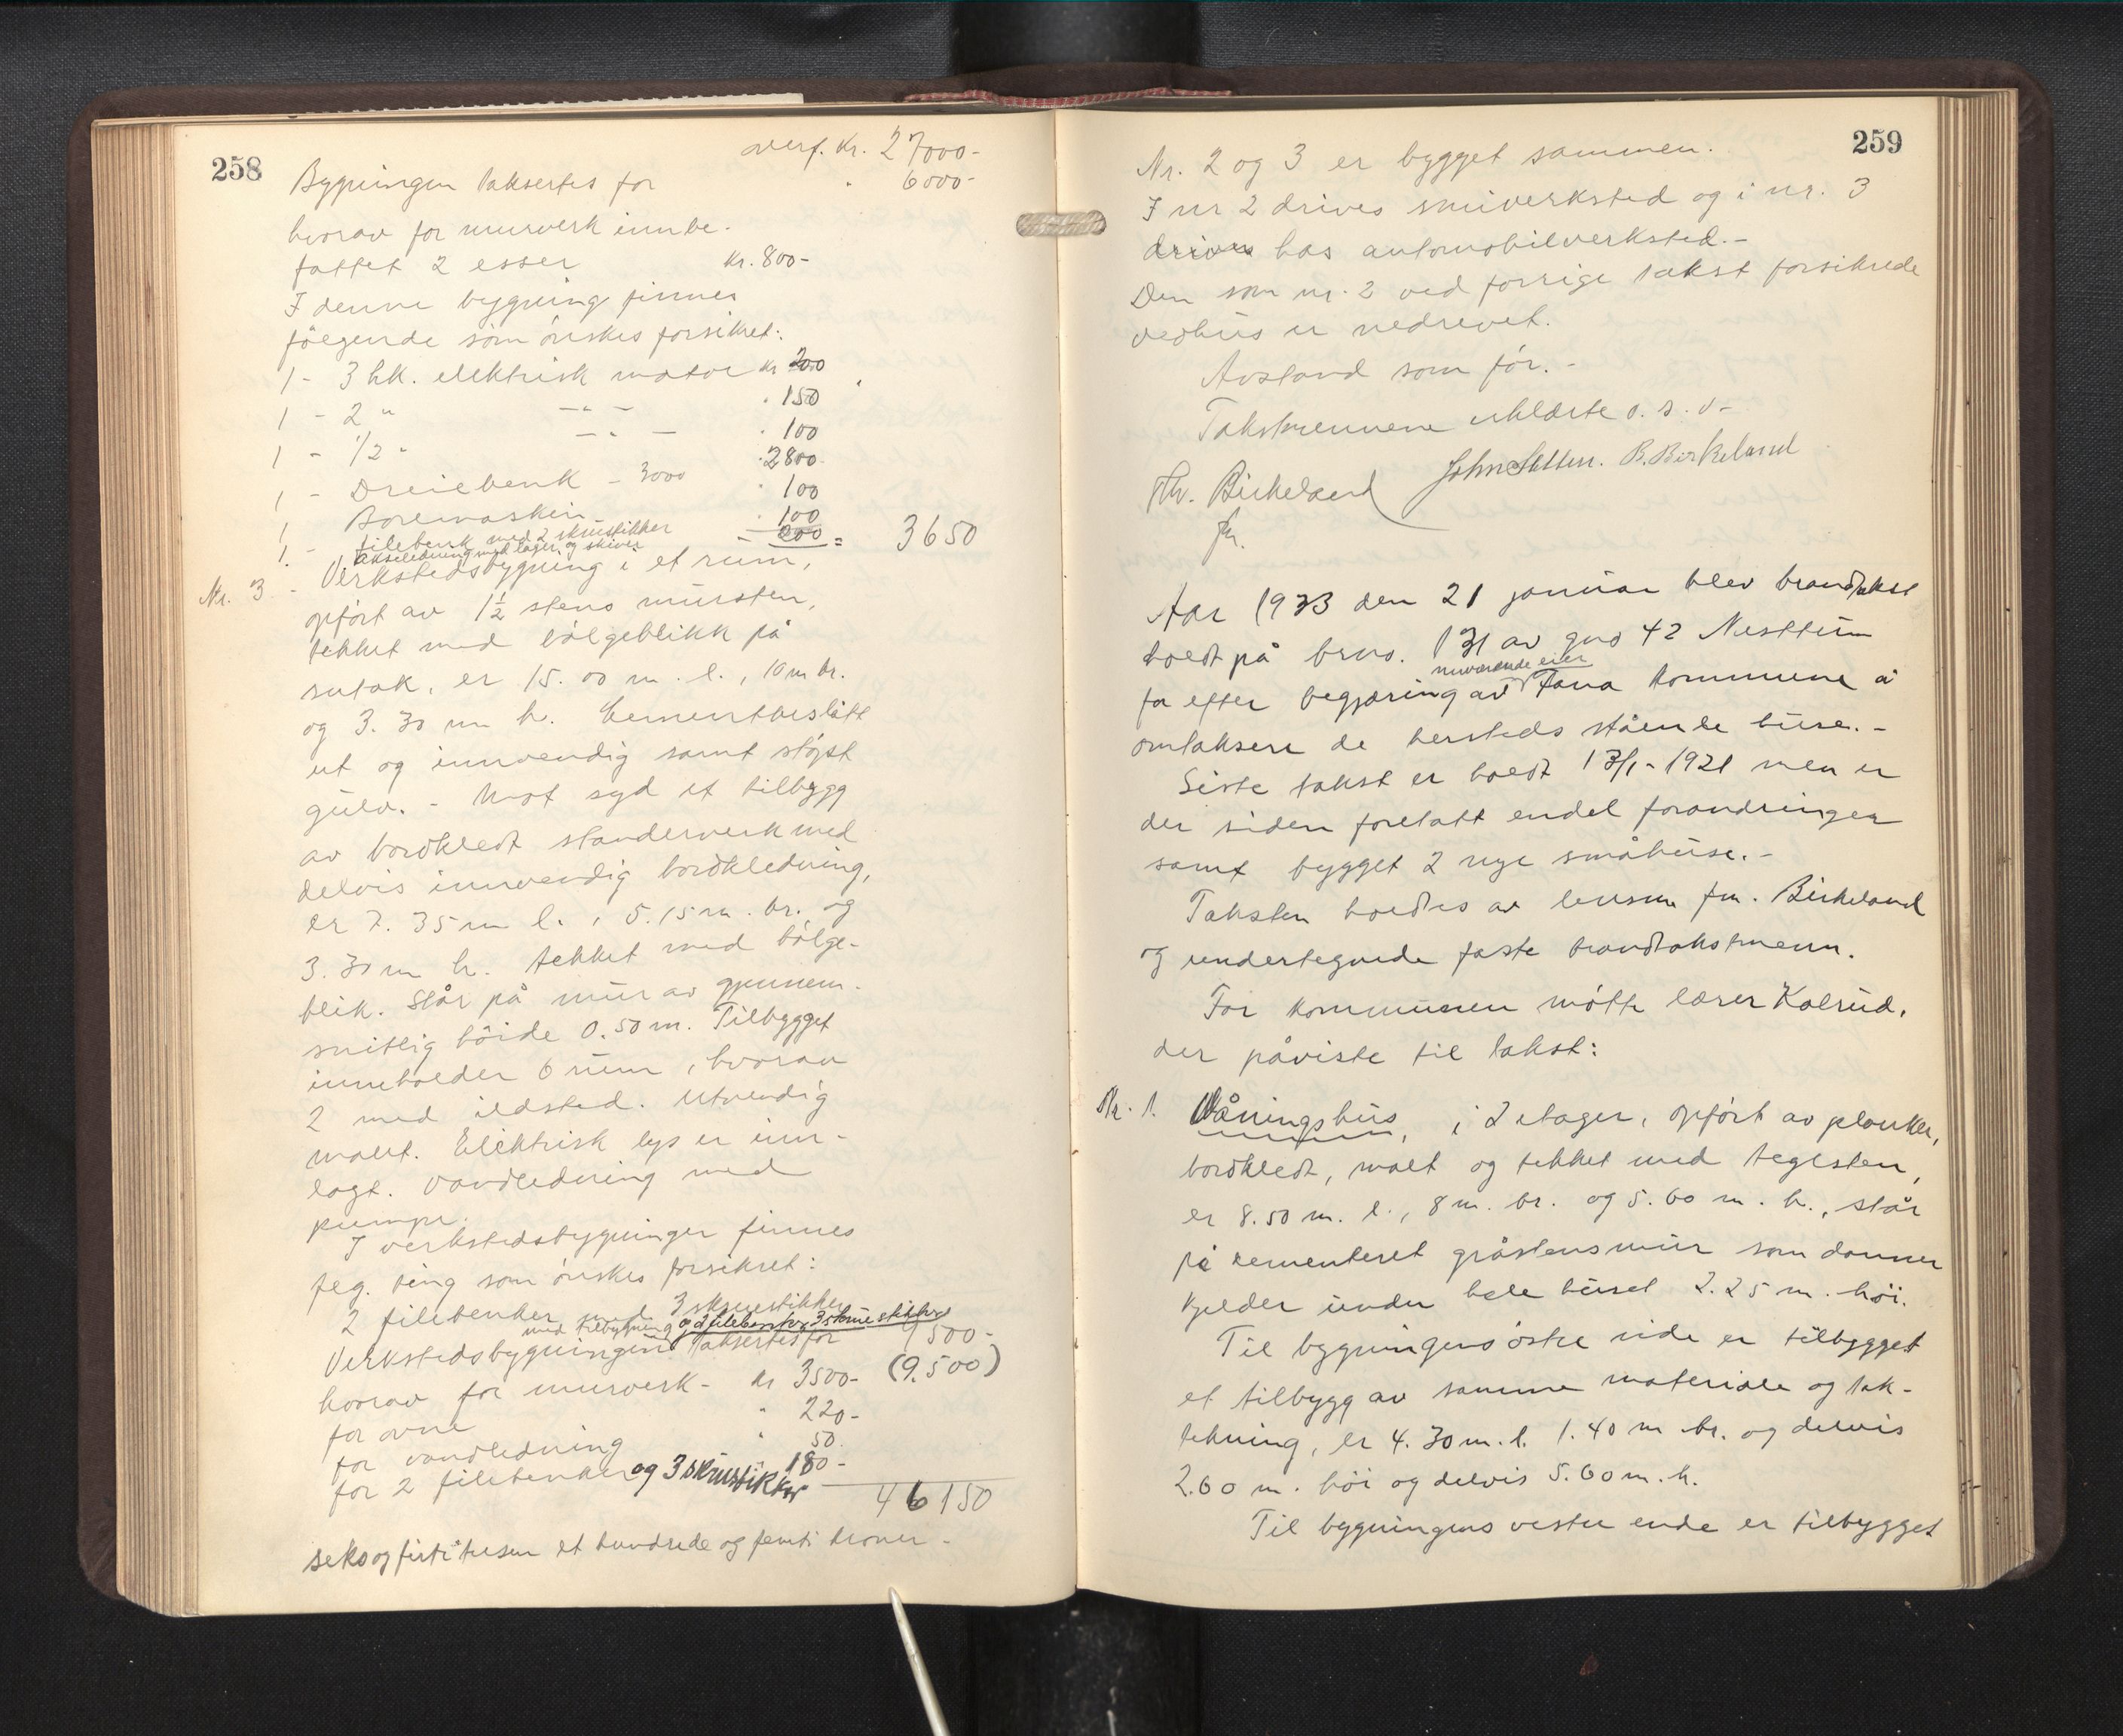 258
overf. kr. 27000-
Bygningen taksertes for " 6000-
hvorav for murverk innbe-
fattet 2 esser kr. 800-
I denne bygning finnes
følgende som ønskes forsikret:
1 - 3 hk. elektrisk motor kr 200
1 - 2 " -"- " 150
1 - 1/2 " -"- " 100
1 - Dreiebenk - 3000 " 2800
1 - Boremaskin " 100
1 - filebenk med 2 skrustikker " 100
1. akseledning med lager og skiver 200 = 3650
Nr. 3 - Verkstedsbygning i et rum,
opført av 1 1/2 stens mursten,
tekket med bølgeblikk på
sutak, er 15.00 m. l., 10 m br.
og 3.30 m h. Cementbeslått
ut og innvendig samt støpt
gulv. - Mot syd et tilbygg
av bordkledt standerverk med
delvis innvendig bordkledning,
er 7.35 m l., 5.15 m. br. og
3.30 m h. tekket med bølge-
blik. Står på mur av gjennem-
snitlig høide 0.50 m. Tilbygget
inneholder 6 rum, hvorav
2 med ildsted. Utvendig
malt. Elektrisk lys er inn-
lagt. Vandledning med
pumpe.
I verkstedsbygningen finnes
følg. ting som ønskes forsikret:
2 filebenker med 3 skruestikker
med tilbygning og 2 filebenker, 3 skruestikker
Verkstedsbygningen taksertes for 9500-
hvorav for murverk - kr 3500- (9.500)
for ovne " 220-
for vandledning " 50.
for 2 filebenker og 3 skrustikker 180-
46150
seksogførtitusen et hundrede og femti kroner -
259
Nr. 2 og 3 er bygget sammen.
I nr 2 drives smiverksted og i nr. 3
drives has automobilverksted. -
Den som nr. 2 ved forrige takst forsikrede
vedhus er nedrevet.
Avstand som før. -
Takstmennene erklærte o. s. v -
Th. Birkeland John Sletten. B. Birkeland
fm.
Aar 1933 den 21 januar blev brandtakst
holdt på brno. 131 av gno 42 Nesttun
nuværende eier
for efter begjæring av Fana kommune å
omtaksere de hersteds stående huse. -
Siste takst er holdt 13/1 - 1921 men er
der siden foretatt endel forandringer
samt bygget 2 nye småhuse. -
Taksten holdtes av lensm fm. Birkeland
og undertegnede faste brandtakstmenn.
For kommunen møtte lærer Kolrud,
der påviste til takst:
Nr. 1. Våningshus, i 2 etager, opført av planker,
bordkledt, malt og tekket med teglsten,
er 8.50 m. l., 8 m. br. og 5.60 m. h., står
på cementeret gråstensmur som danner
kjelder under hele huset 2.25 m. høi.
Til bygningens østre side er tilbygget
et tilbygg av samme materiale og tak-
tekning, er 4.30 m. l. 1.40 m br. og delvis
2.60 m. høi og delvis 5.60 m. h.
Til bygningens vestre ende er tilbygget